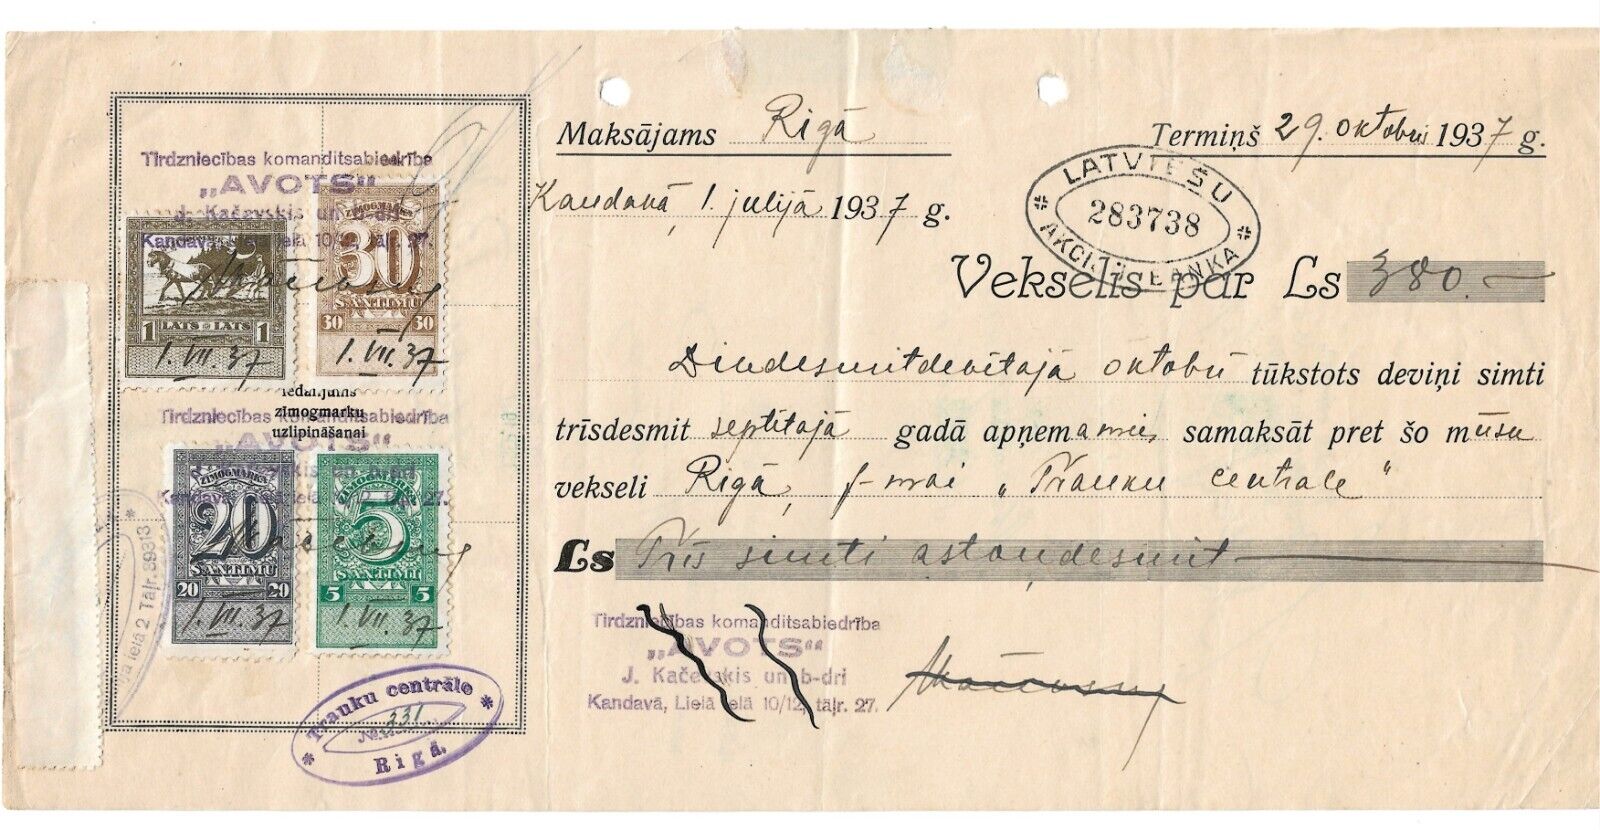 Tirdzniecības komanditsabiedrība
„AVOTS“
J. Kačevskis un b-dri
Kandavā, Lielā ielā 10/12, tāļr. 27.
ZĪMOGMARKA
30
SANTIMU
30 30
1 LATS LATS 1
1. VII. 37
1. VII. 37
zīmogmarku
uzlipināšanai
Tirdzniecības komanditsabiedrība
„AVOTS“
Kandavā, Lielā ielā 27.
ZĪMOGMARKA
20
SANTIMU
20 20
ZĪMOGMARKA
5
SANTIMI
5 5
1. VII. 37
1. VII. 37
ielā 2 Tāļr. 39313
* Trauku centrāle *
No. 331
Rīgā.
Maksājams Rīgā
Termiņš 29. oktobrī 1937 g.
Kandavā, 1. jūlijā 1937 g.
LATVIEŠU
283738
AKCIJU BANKA
Vekselis par Ls 380.—
Divdesmitdevītajā oktobrī tūkstots deviņi simti
trīsdesmit septītajā gadā apņemamies, samaksāt pret šo mūsu
vekseli Rīgā, f-mai „Trauku centrale“
Ls Trīs simti astoņdesmit
Tirdzniecības komanditsabiedrība
„AVOTS“
J. Kačevskis un b-dri
Kandavā, Lielā ielā 10/12, tāļr. 27.